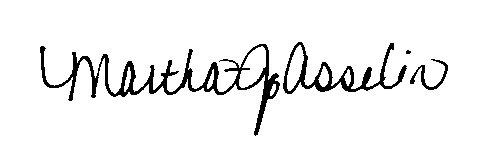 Martha Jo Asselin